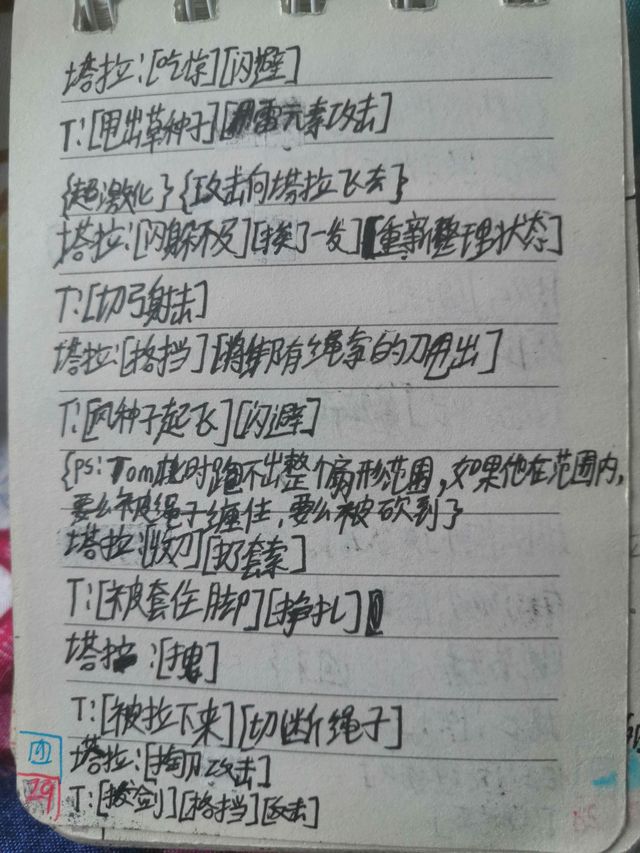 塔拉:[吃惊][闪避]
T:[甩出草种子][雷元素攻击]
{超激化}{攻击向塔拉飞去}
塔拉:[闪躲不及][挨了一发][重新整理状态]
T:[切弓射击]
塔拉:[格挡][将绑有绳索的刀甩出]
T:[风种子起飞][闪避]
{ps:Tom此时跑不出整个扇形范围,如果他在范围内,
要么被绳子缠住,要么被砍到}
塔拉:[收刀][扔套索]
T:[被套住脚][挣扎]
塔拉:[拽]
T:[被拉下来][切断绳子]
塔拉:[掏刀攻击]
T:[拔剑][格挡][攻击]
29